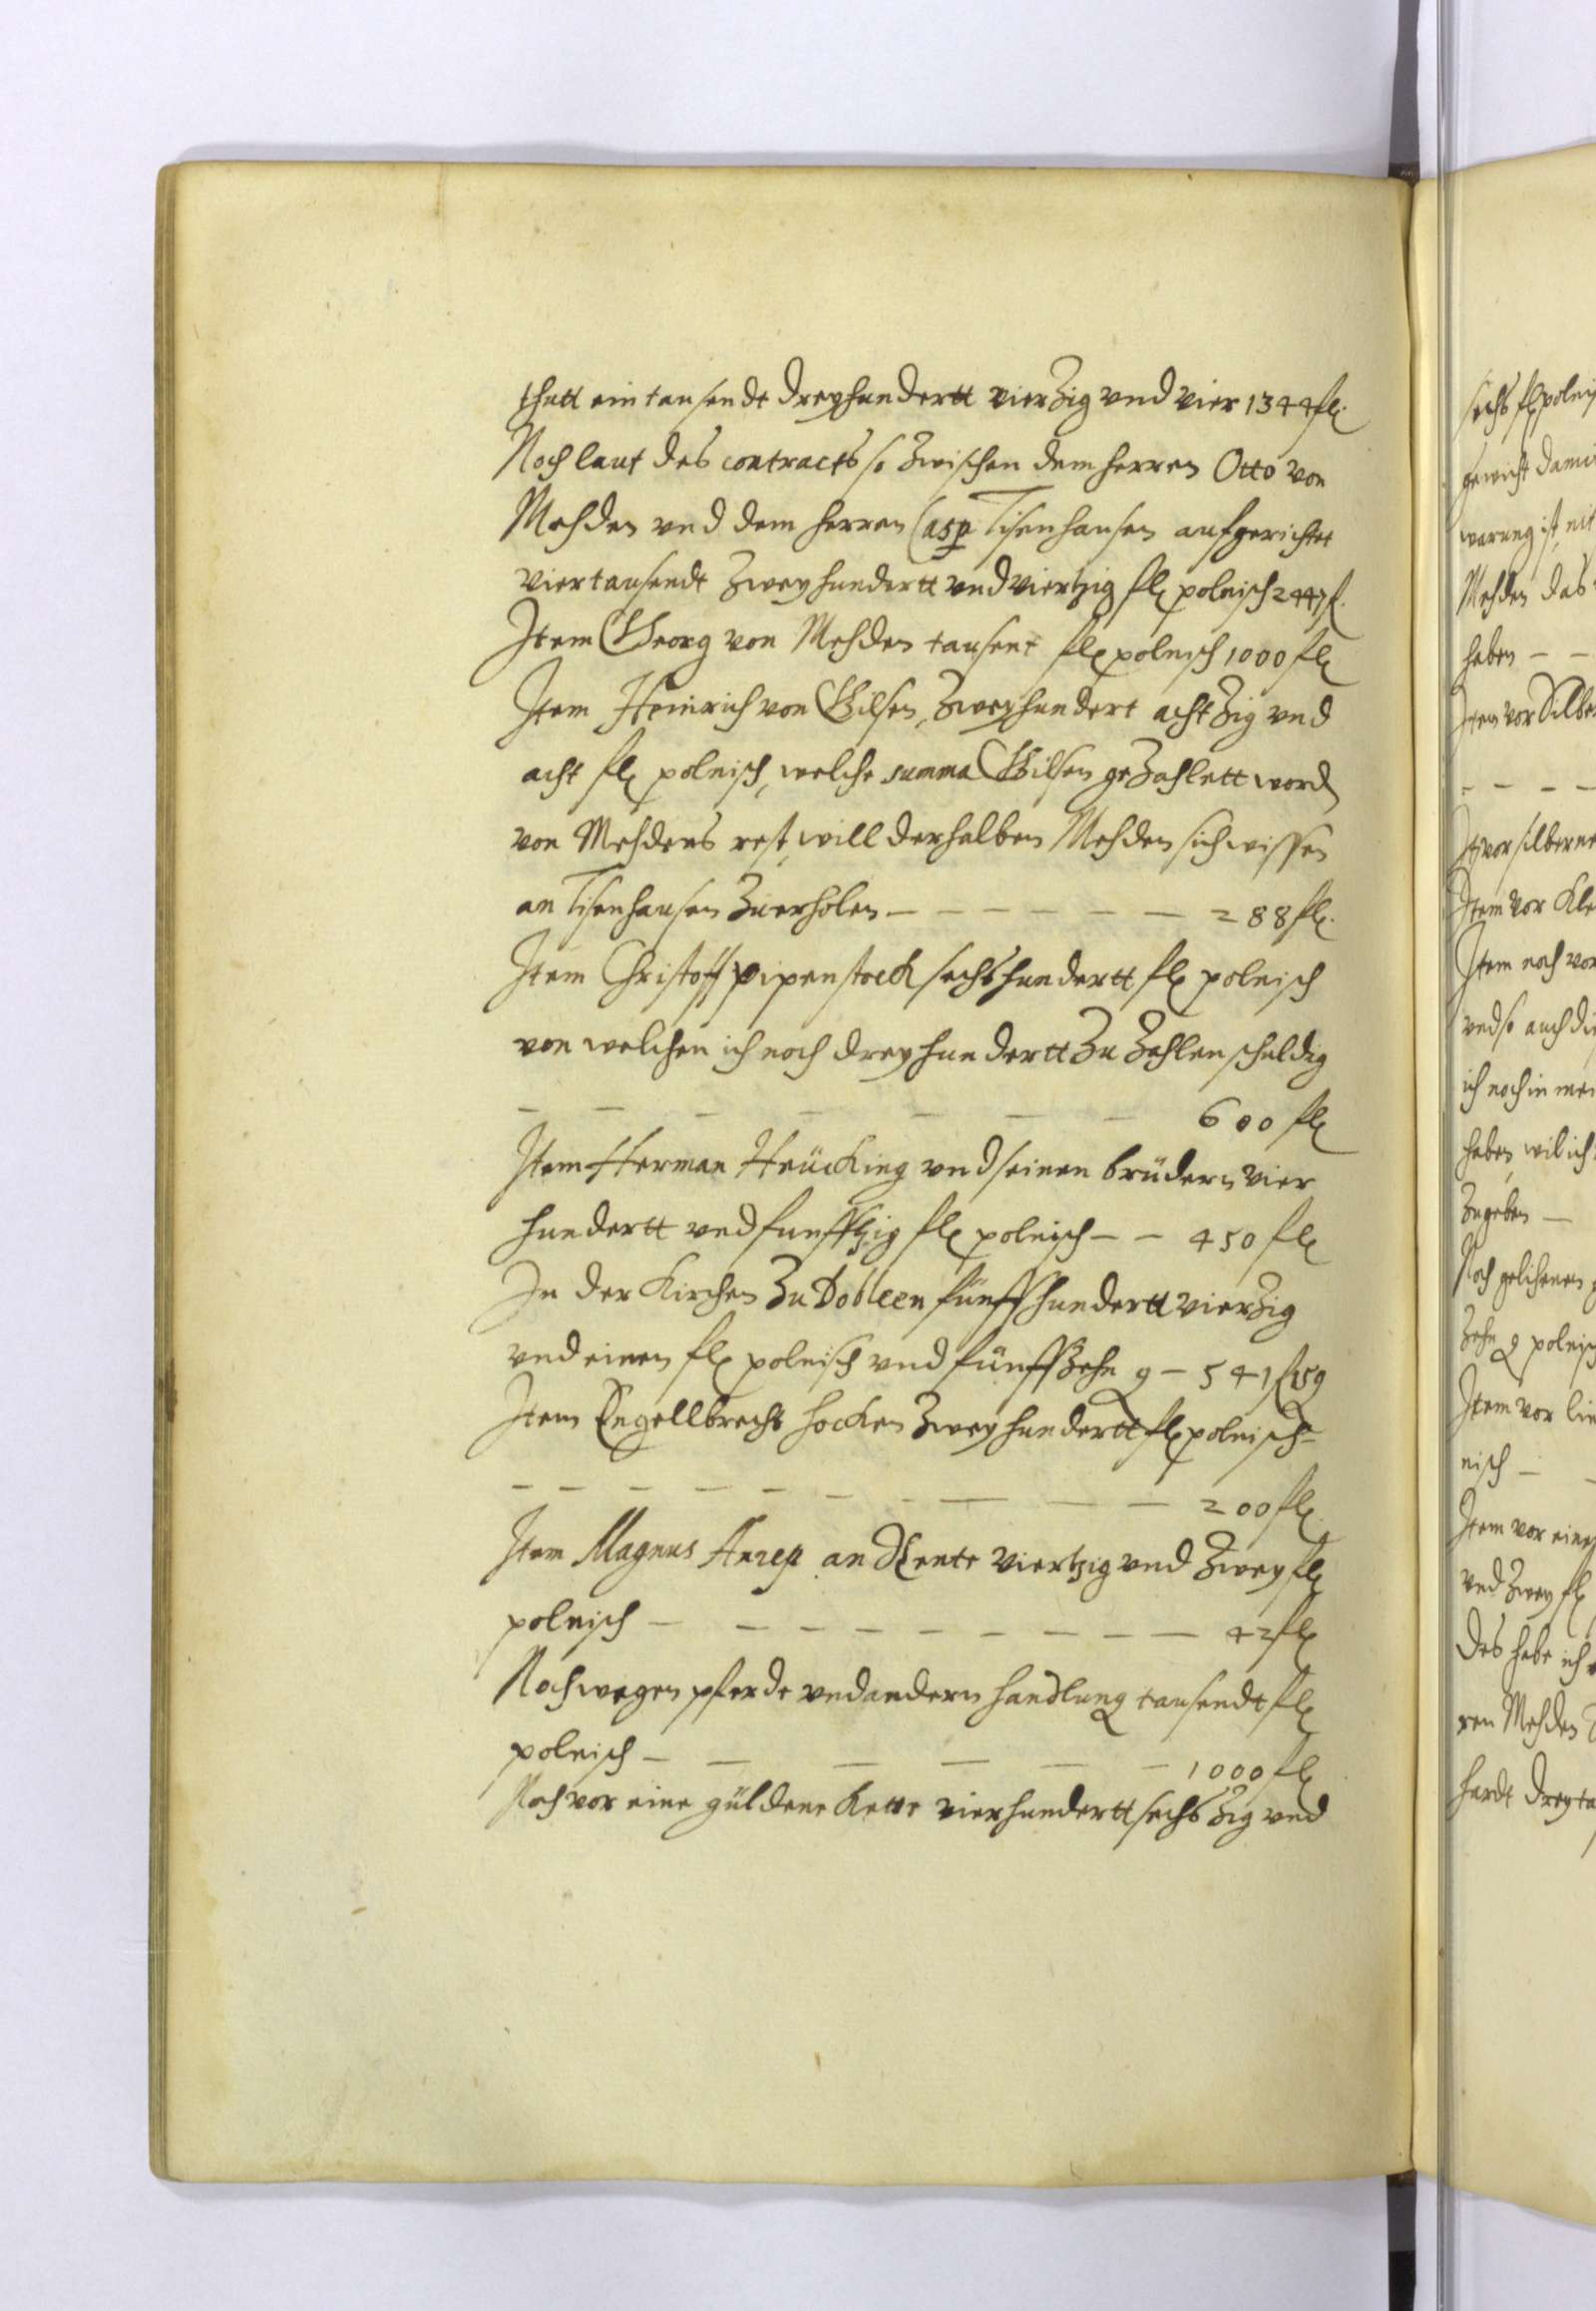 thutt ein tausendt dreyhundertt vierzig vnd vier 1344 fl.
Noch laut des contracts so zwischen dem herren Otto von
Mehden vnd dem herren Casp Tisenhausen aufgerichtet
viertausendt zweyhundertt vnd viertzig fl polnisch
Item Georg von Mehden tausent fl polnisch 1000 fl
Item Heinrich von Gilsen, zweyhundert achtzig vnd
acht fl polnisch, welche summa Gilsen gezahlett word
von Mehdens rest, will derhalben Mehden sich wissen
an Tisenhausen zuerholen — — — — — — — 288 fl.
Item Christoff pipenstock sechshundertt fl polnisch
von welchen ich noch dreyhundertt zu zahlen schuldig
— — — — — — — 600 fl
Item Herman Hrücking vnd seinen brüdern vier
hundertt vnd funfftzig fl polnisch — — 450 fl
In der Kirchen zu Dobleen fünffhundertt vierzig
vnd einen fl polnisch vnd fünffzehn g — 541 fl 15 g
Item Engellbrecht hocken zweyhundertt fl polnisch —
— — — — — — — — — — 200 fl.
Item Magnus Anrep an Rente viertzig vnd zwey fl
polnisch — — — — — — — — — — 42 fl
Noch wegen pferde vnd andern handlung tausendt fl
polnisch — — — — — — 1000 fl
Noch vor eine güldene Kette vierhundertt sechszig vnd
sechs fl polnis
gewicht
warung ist
Mehden das
haben — —
Item vor Silbe
— — — —
It vor silberne
Item vor Kle
Item noch vor
vnd so auch die
ich noch in mei
haben, wil ich
zugeben —
Noch gelihenen
zehn g polnisch
Item vor lin
nisch —
Item vor einen
vnd zwey fl
Des habe ich
ren Mehden
hardt dreyta